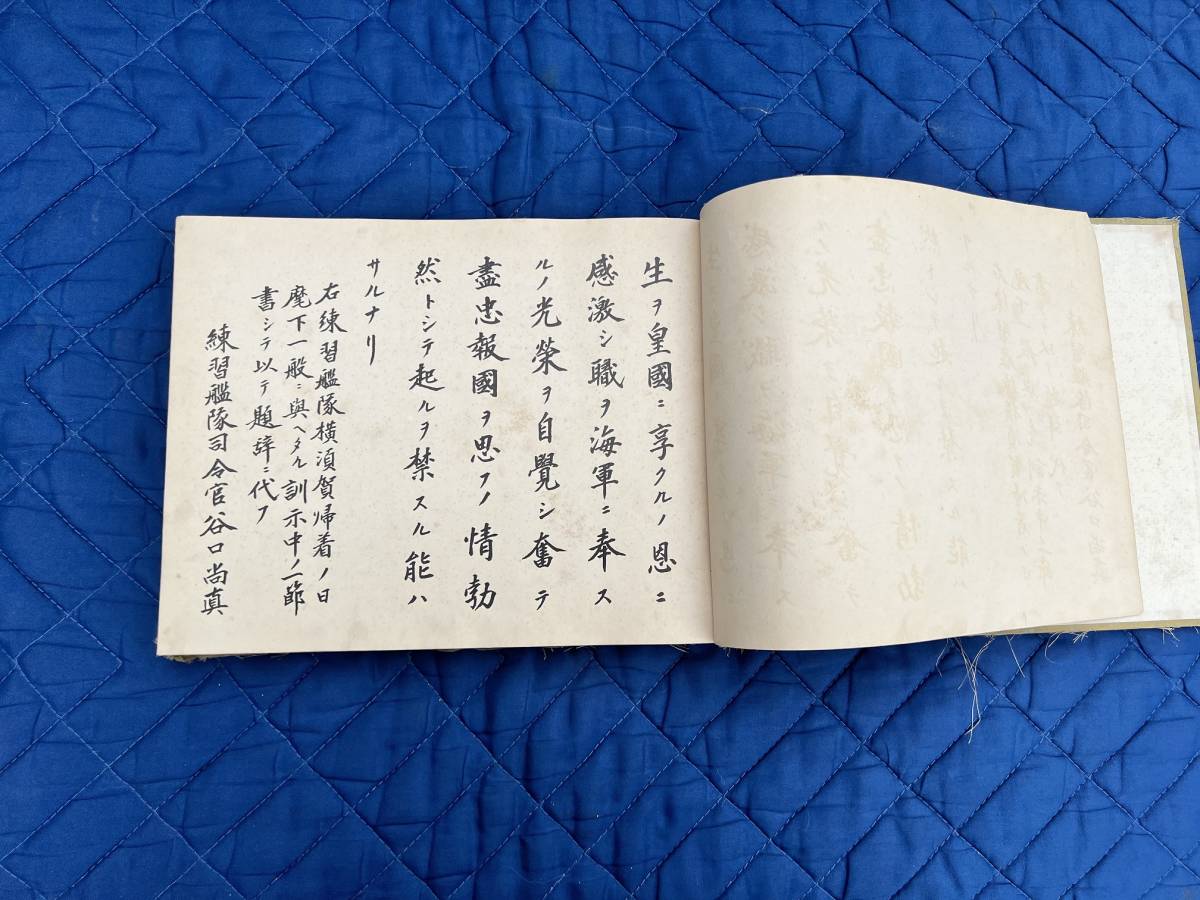 生ヲ皇國ニ享クルノ恩ニ
感激シ職ヲ海軍ニ奉ス
ルノ光榮ヲ自覺シ奮テ
盡忠報國ヲ思フノ情勃
然トシテ起ルヲ禁スル能ハ
サルナリ
右練習艦隊横須賀帰着ノ日
麾下一般ニ與ヘタル訓示中ノ一節
書シテ以テ題辞ニ代フ
練習艦隊司令官谷口尚真